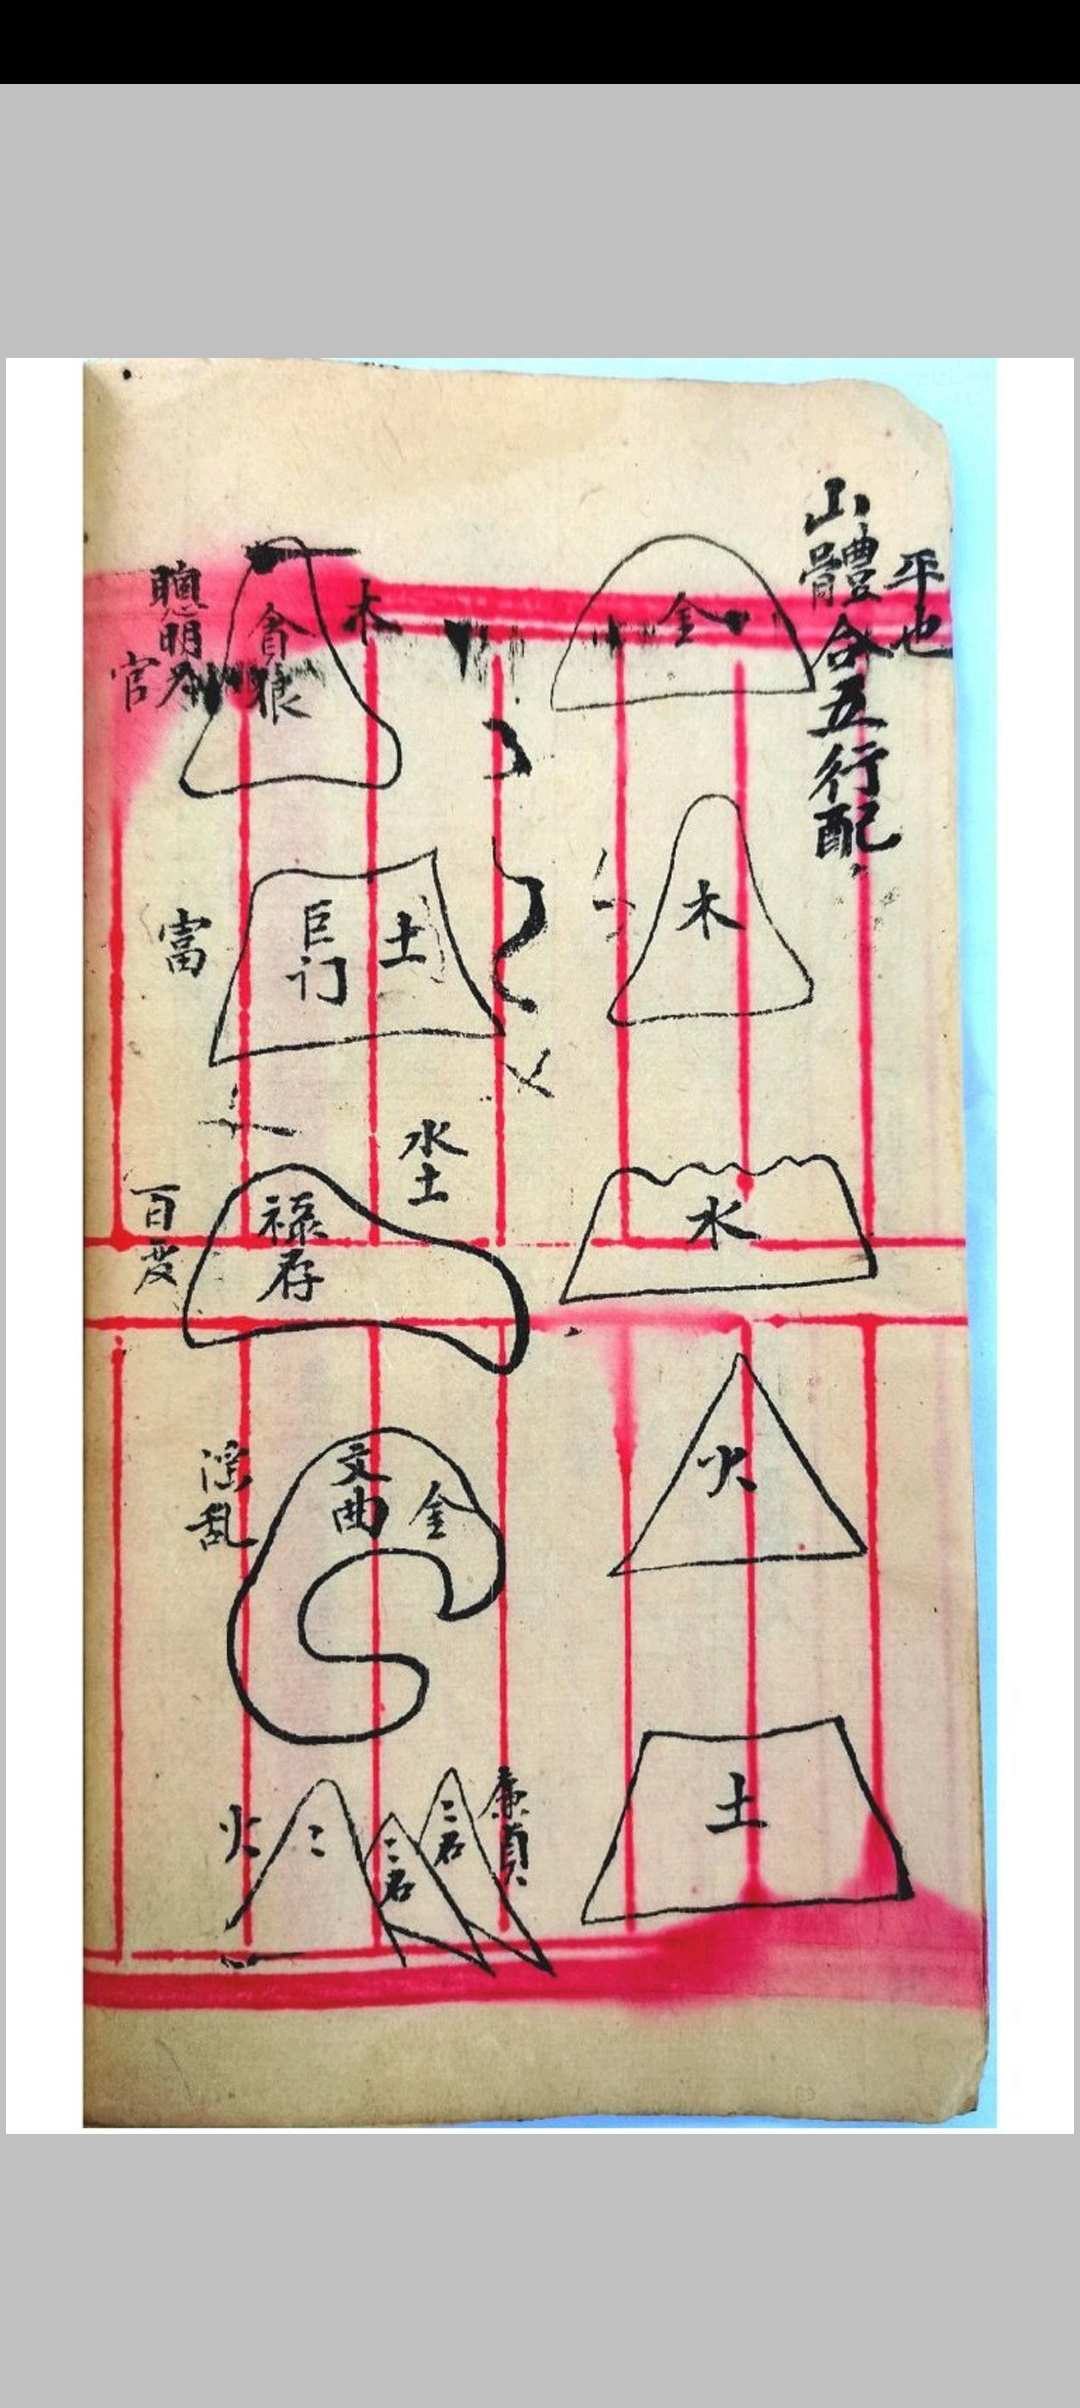 平也
山體合五行配
金
木
水
火
土
木
貪狼
聰明
官
土
巨门
富
水土
禄存
百度
文曲
金
淫乱
廉貞
火